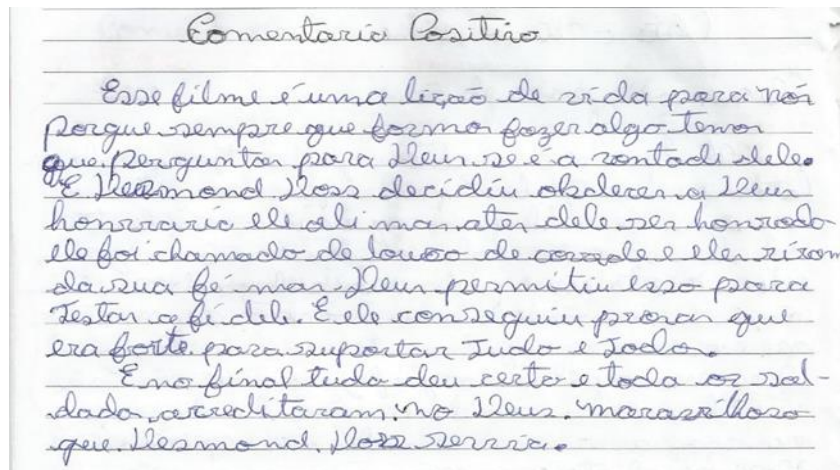 Comentario Positivo
Esse filme é uma lição de vida para nós
porque sempre que formos fazer algo temos
que perguntar para Deus se é a vontade dele.
E Desmond Doss decidiu obderer a Deus
honrraria ele ali mas ates dele ser honrado
ele foi chamado de louco de covade e eles riram
da sua fé mas Deus permitiu isso para
Testar a fé dele. E ele conseguiu provar que
era forte para suportar Tudo e Todos.
E no final tudo deu certo e todos os sol-
dados acreditaram no Deus maravilhoso
que Desmond Doss servia.